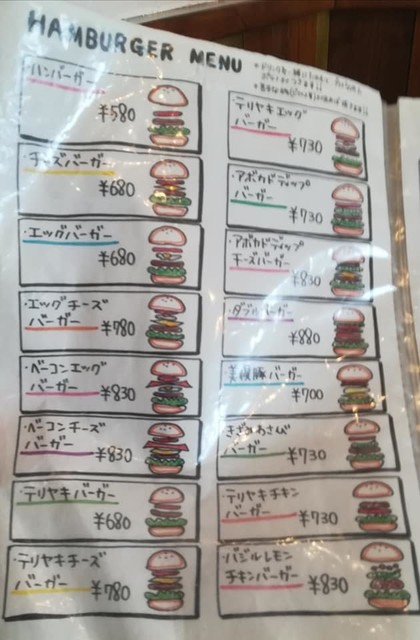 HAMBURGER MENU
・ハンバーガー
¥580
・チーズバーガー
¥680
・エッグバーガー
¥680
・エッグチーズ
バーガー
¥780
・ベーコンエッグ
バーガー
¥830
・ベーコンチーズ
バーガー
¥830
・テリヤキバーガー
¥680
・テリヤキチーズ
バーガー
¥780
・テリヤキエッグ
バーガー
¥730
・アボカドディップ
バーガー
¥730
・アボカドディップ
チーズバーガー
¥830
・ダブルバーガー
¥880
豚バーガー
¥700
きざみわさび
バーガー
¥730
・テリヤキチキン
バーガー
¥730
・バジルレモン
チキンバーガー
¥830